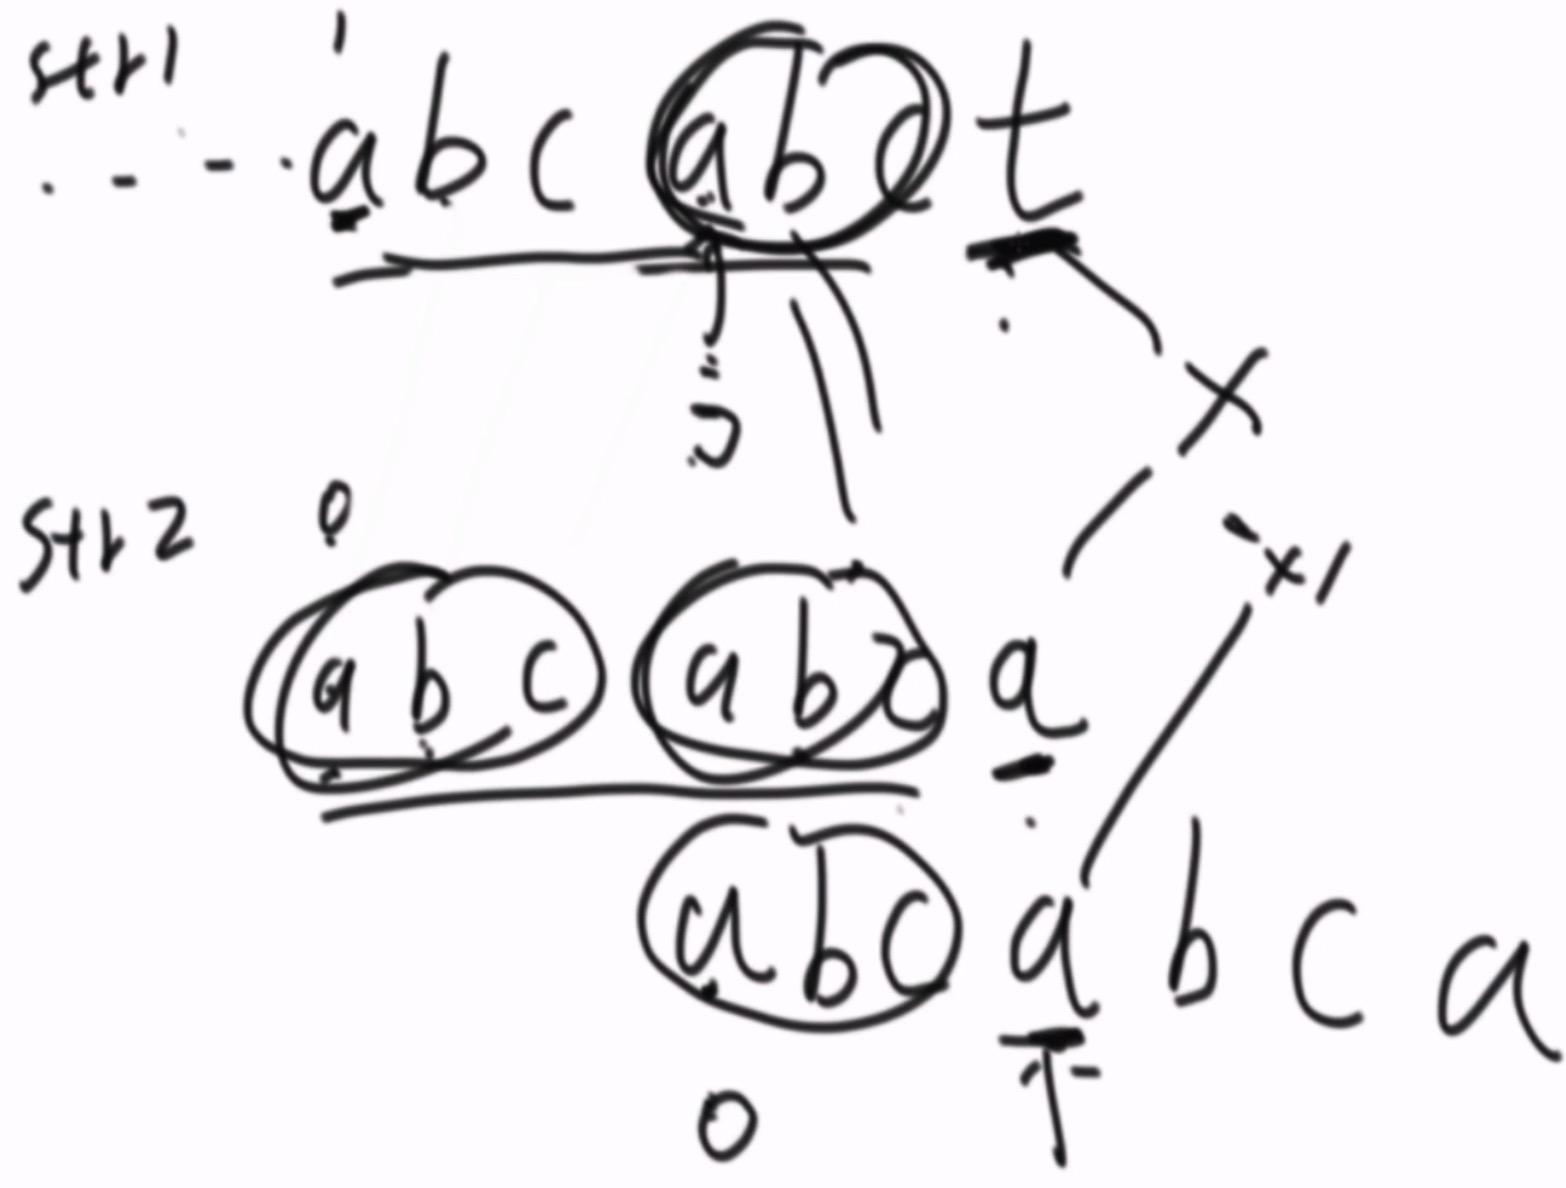 str1 i
.--. a b c a b c t
j
str2 0
a b c a b c a
a b c a b c a
0